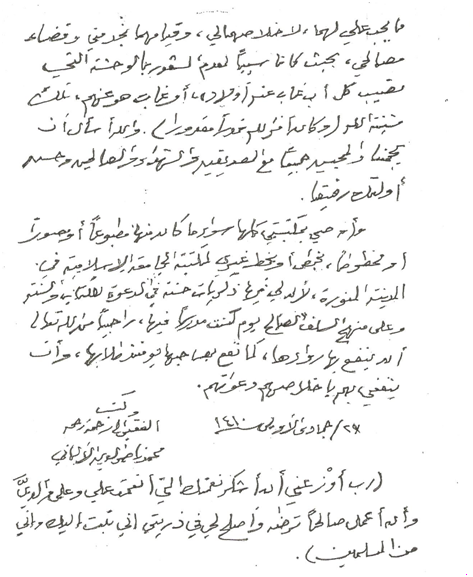 ما يجب علي لهما، لإخلاصهما لي، وقيامهما بخدمتي وقضاء
مصالحي، بحيث كانا سبباً لعدم شعوري بالوحشة التي
تصيب كل أب غاب عنه أولاده، أو غاب هو عنهم، تلك
مشيئة الله (وكان أمر الله قدراً مقدورا). والله أسأل أن
يجمعنا والمحبين جميعاً مع الصديقين والشهداء والصالحين وحسن
أولئك رفيقا.
وأوصي بمكتبتي كلها سواء ما كان منها مطبوعاً أو مصورا
أو مخطوطا، بخطي أو بخط غيري لمكتبة الجامعة الإسلامية في
المدينة المنورة، لأن لي فيها ذكريات حسنة في الدعوة للكتاب والسنة
وعلى منهج السلف الصالح يوم كنت مدرساً فيها، راجياً من الله تعالى
أن ينفع بها روادها، كما نفع بصاحبها يومئذ طلابها، وأن
ينفعني بهم بإخلاصهم ودعواتهم.
وكتب
٢٧/ جمادى الأولى ١٤١٠ الفقير إلى رحمة ربه
محمد ناصر الدين الألباني
(رب أوزعني أن أشكر نعمتك التي أنعمت علي وعلى والديَّ
وأن أعمل صالحاً ترضاه وأصلح لي في ذريتي إني تبت إليك وإني
من المسلمين).